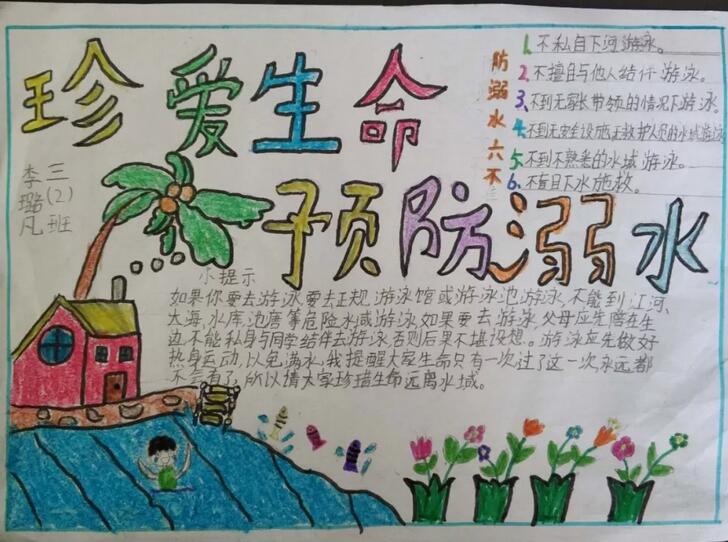 珍爱生命
预防溺水
三(2)班
李璐凡
防溺水六不
1.不私自下河游泳。
2.不擅自与他人结伴游泳。
3.不到无家长带领的情况下游泳。
4.不到无安全设施无救护人员的水域游泳
5.不到不熟悉的水域游泳。
6.不盲目下水施救。
小提示
如果你要去游泳要去正规游泳馆或游泳池游泳,不能到江河、
大海、水库、池唐等危险水域游泳,如果要去游泳,父母应先陪在生
边,不能私身与同学结伴去游泳,否则后果不堪设想。游泳应先做好
热身运动,以免满水,我提醒大家生命只有一次,过了这一次,永远都
不会有了,所以请大家珍惜生命远离水域。